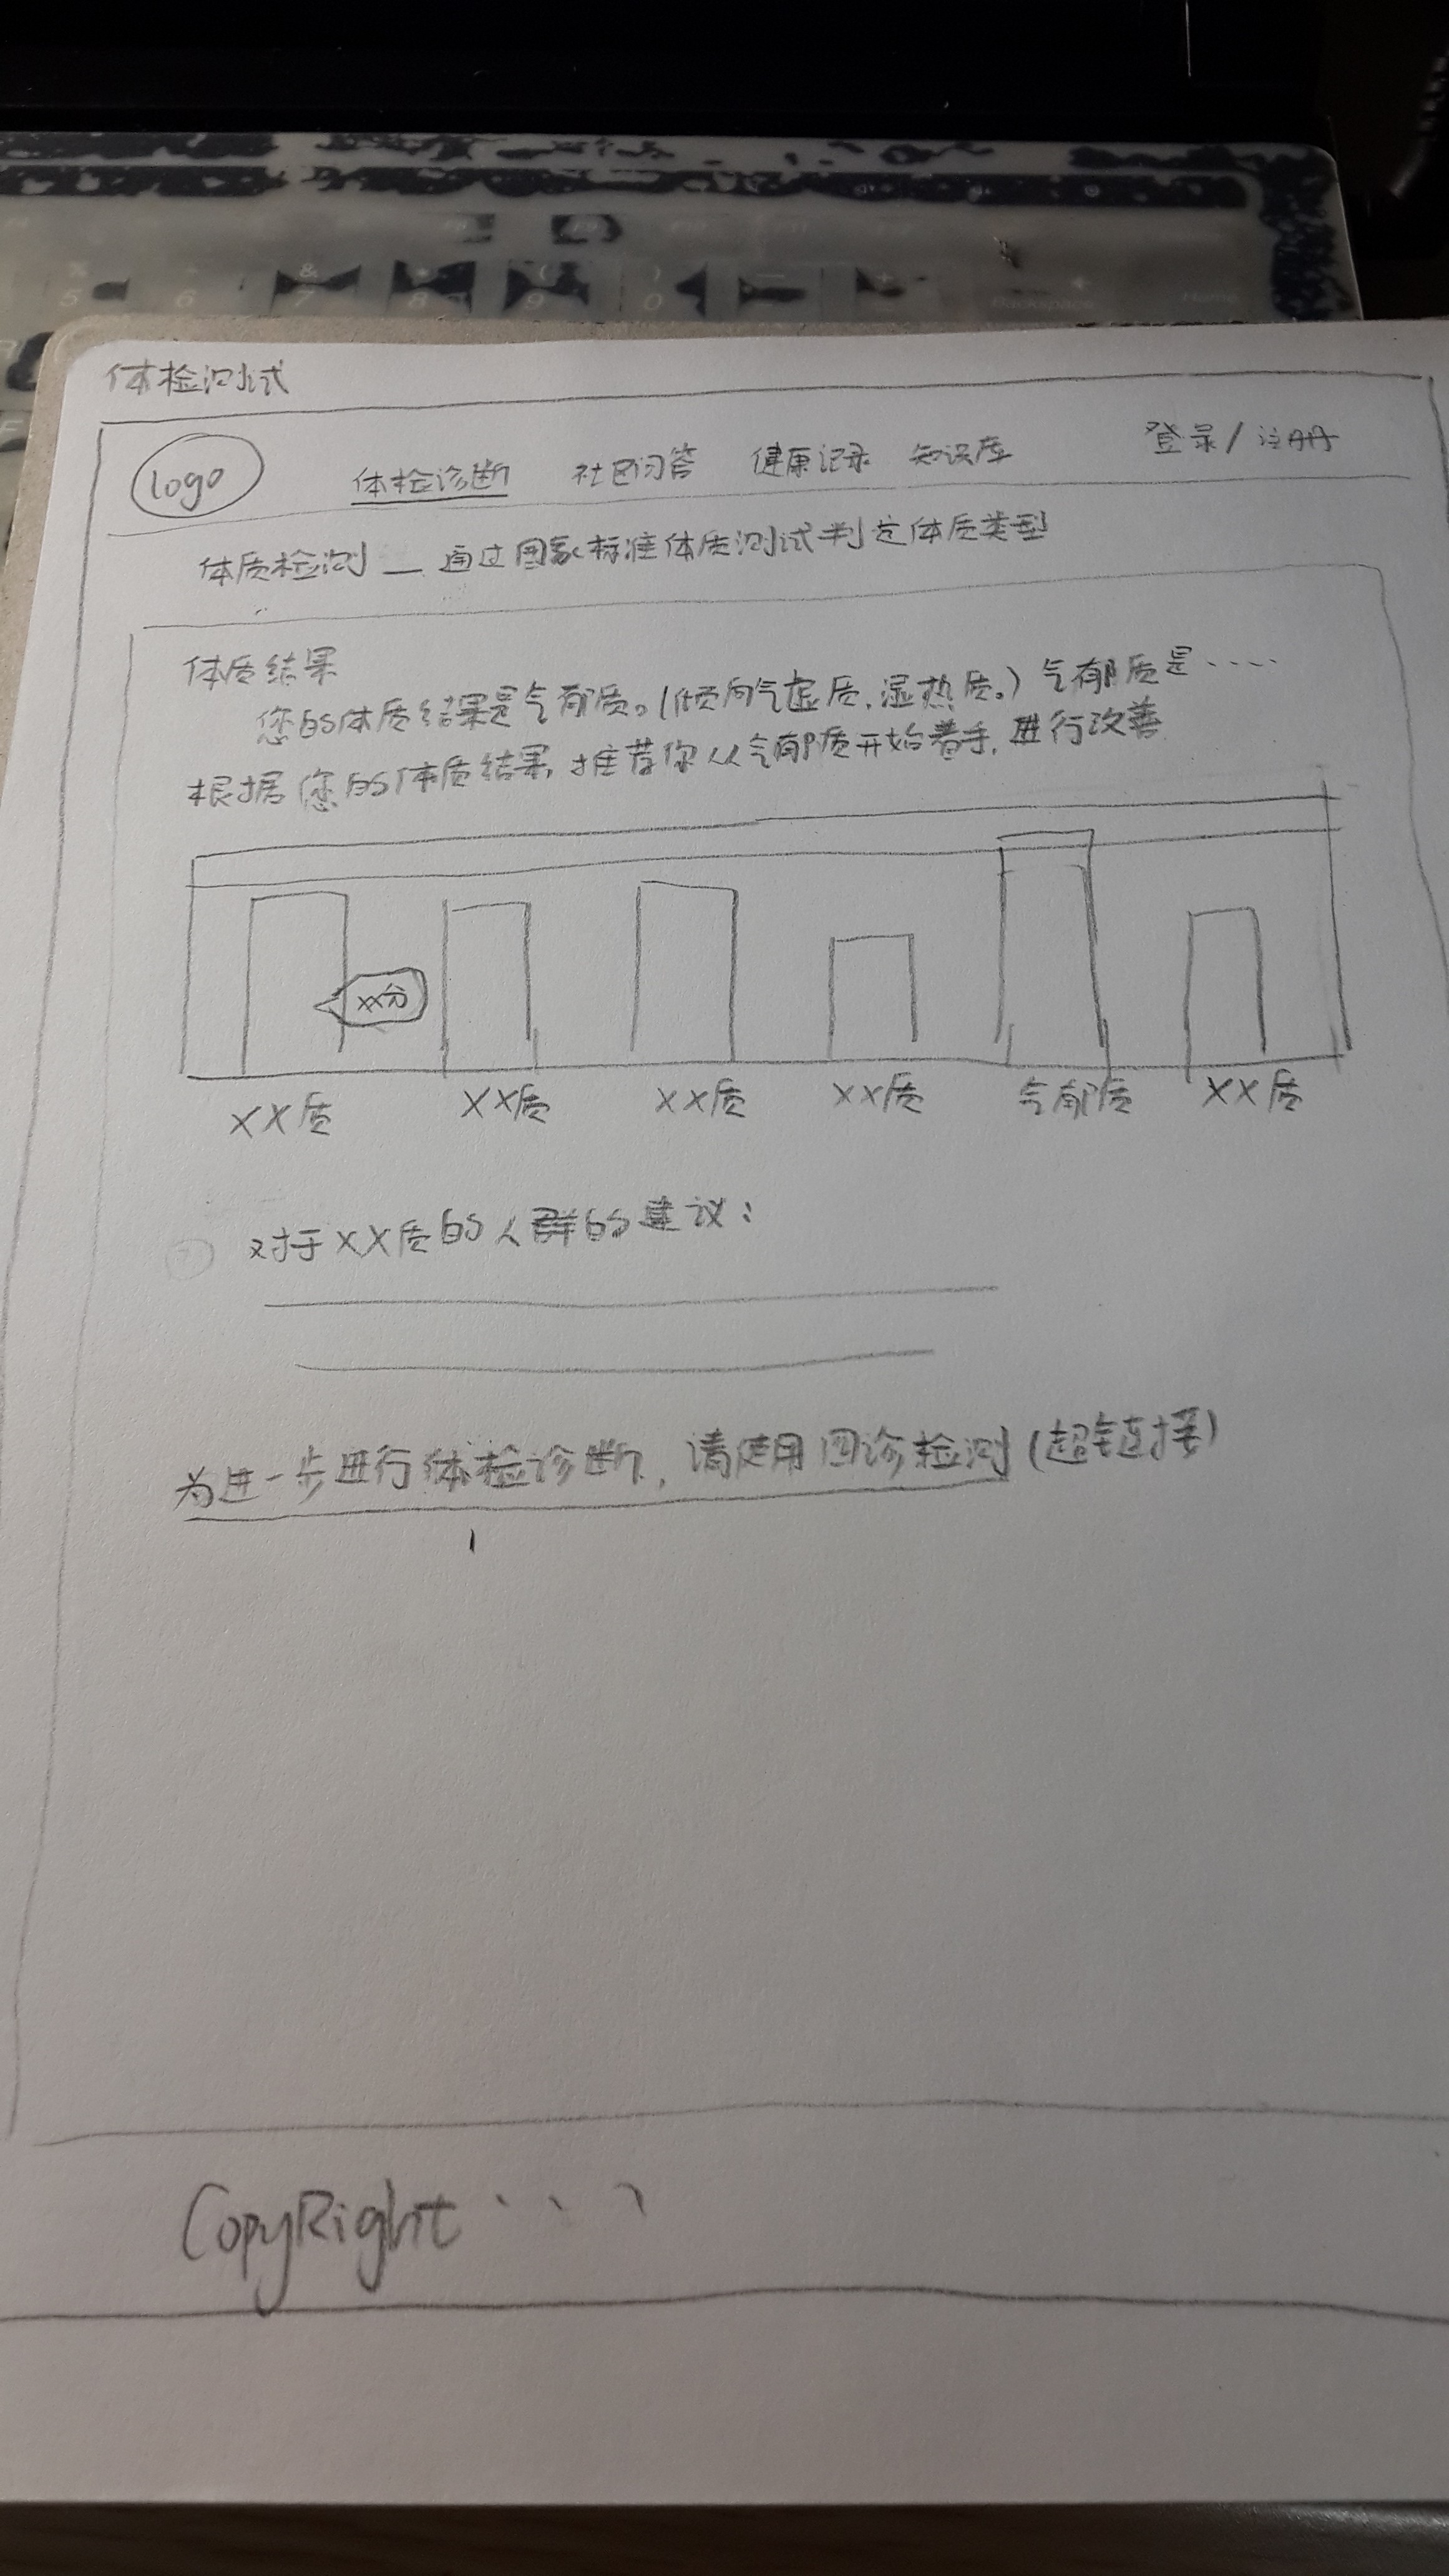 体检测试
logo 体检诊断 社区问答 健康记录 知识库 登录/注册
体质检测 — 通过国家标准体质测试判定体质类型
体质结果
您的体质结果是气郁质。(倾向气虚质,湿热质。) 气郁质是.....
根据您的体质结果,推荐你从气郁质开始着手,进行改善
xx分
XX质 XX质 XX质 XX质 气郁质 XX质
对于XX质的人群的建议:
为进一步进行体检诊断,请使用图诊检测(超链接)
CopyRight...
% & * ( )
5 6 7 8 9 0
Backspace Home